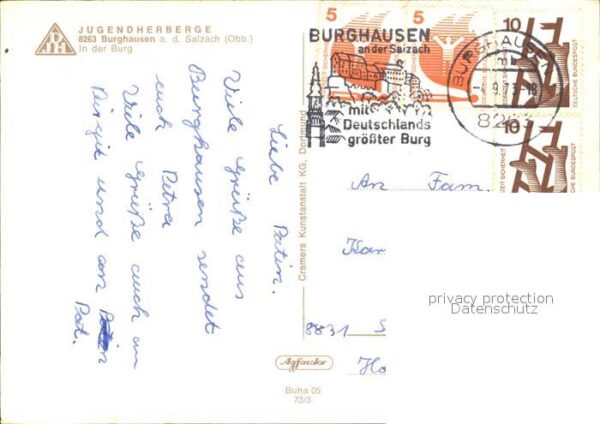 JUGENDHERBERGE
8263 Burghausen a. d. Salzach (Obb.)
In der Burg
Liebe Patin.
Viele Grüße aus
Burghausen sendet
euch Petra
Viele Grüße auch an
Birgit und an
Pat.
Cramers Kunstanstalt KG, Dortmund
Agfacolor
Buha 05
73/3
5
5
10
10
DEUTSCHE BUNDESPOST
BURGHAUSEN
an der Salzach
mit
Deutschlands
größter Burg
BURGHAUSEN
-4.9.73-18
An Fam.
Kar
8831 S
Ho
privacy protection
Datenschutz